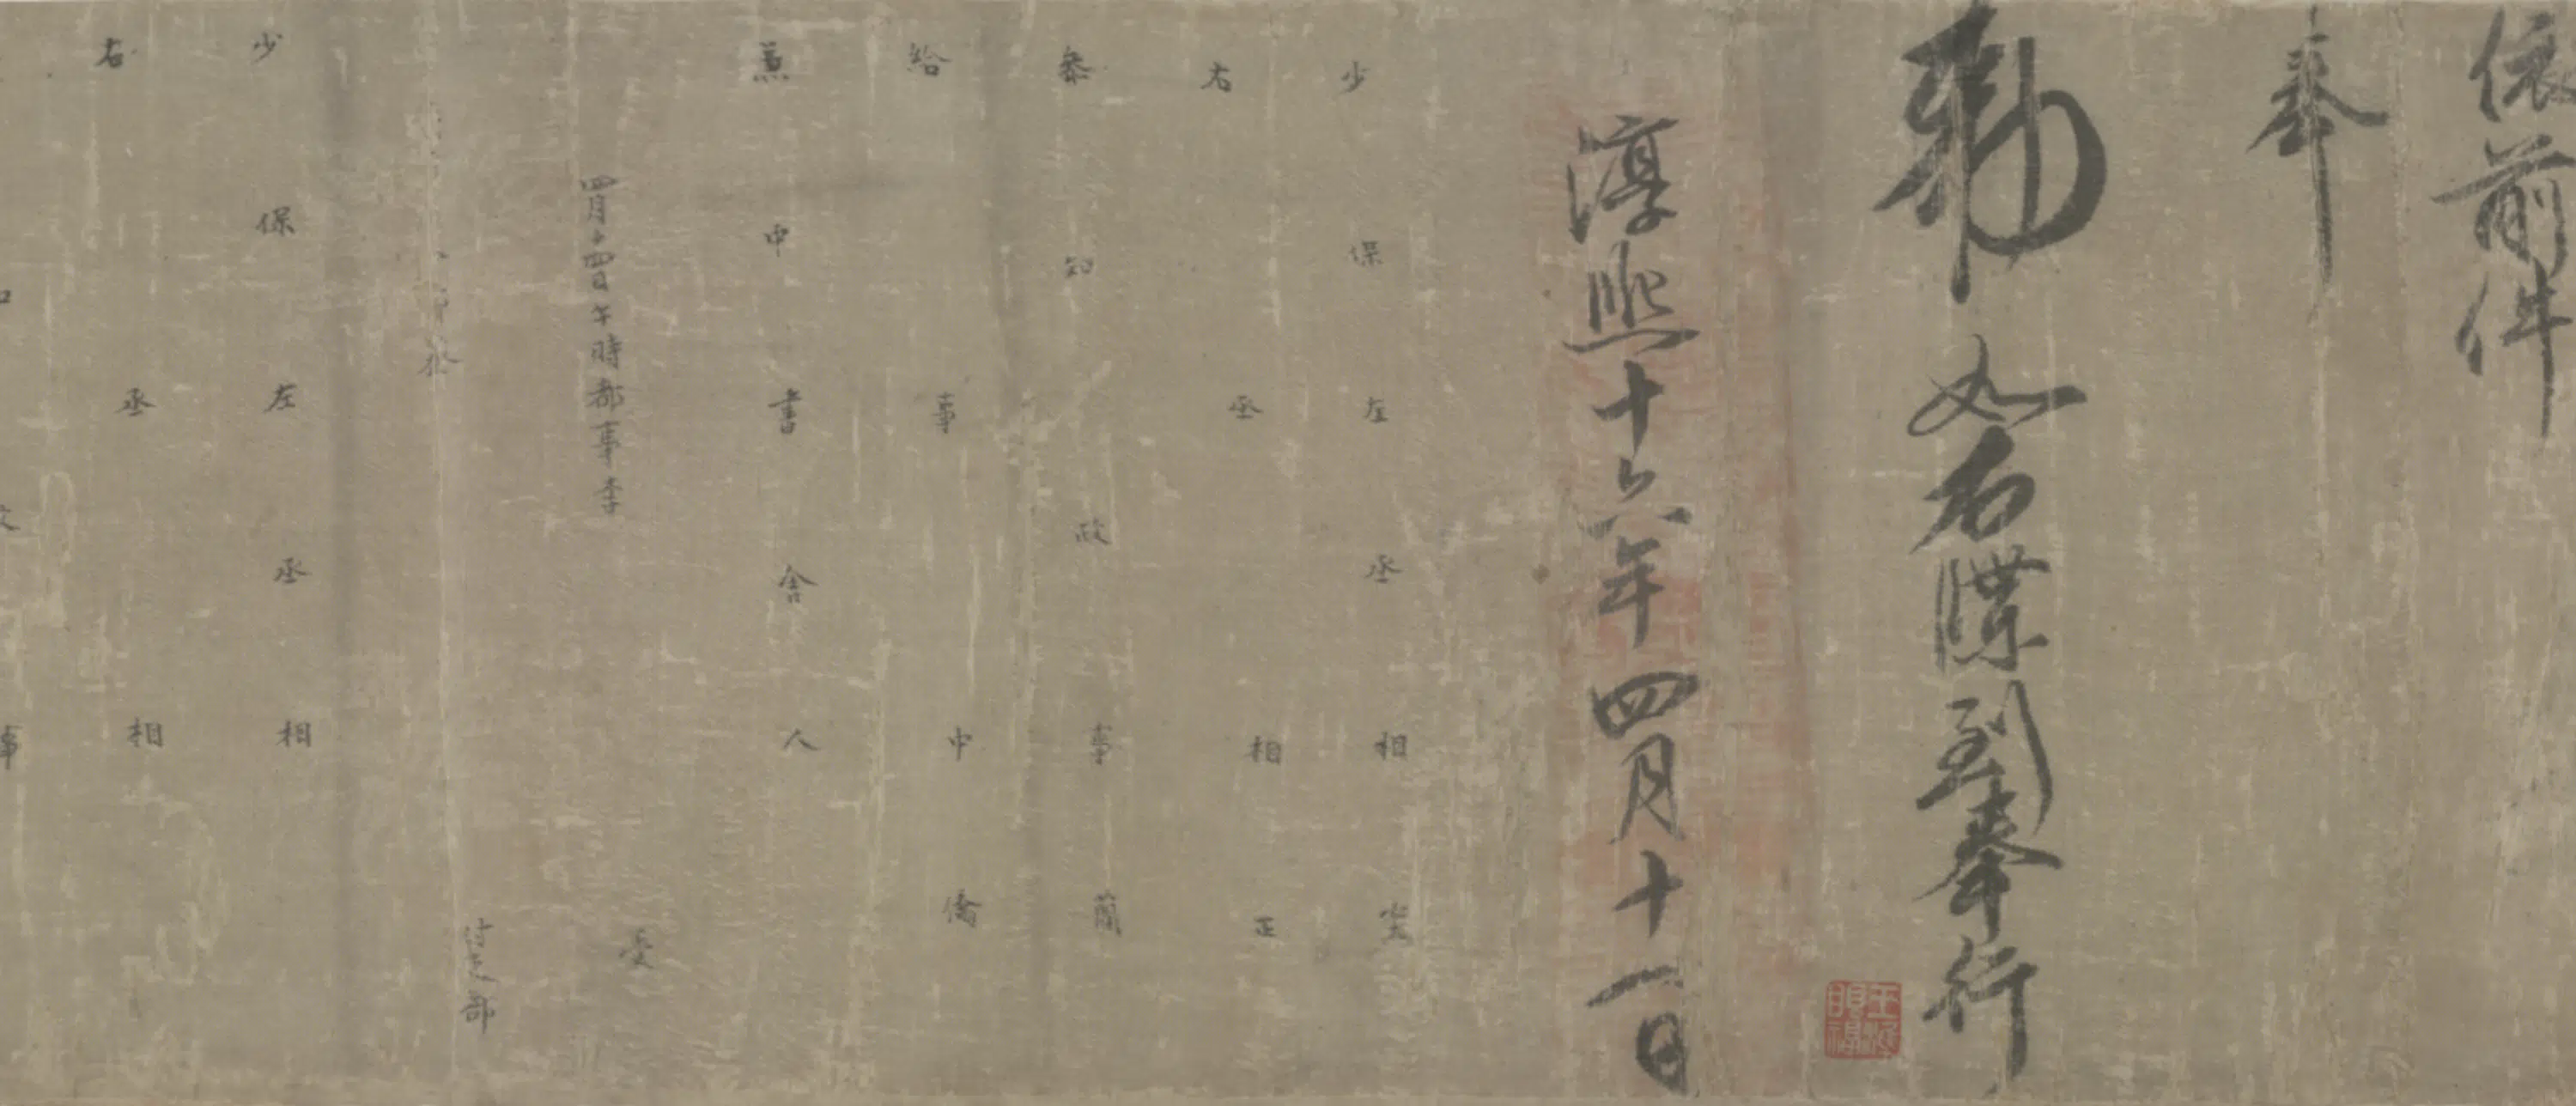 依前件
奉
勑如右牒到奉行
淳熙十六年四月十一日
少保左丞相必大
右丞相正
叅知政事藺
給事中僑
兼中書舍人
四月十四日午時都事李受
付吏部
少保左丞相
右丞相
事